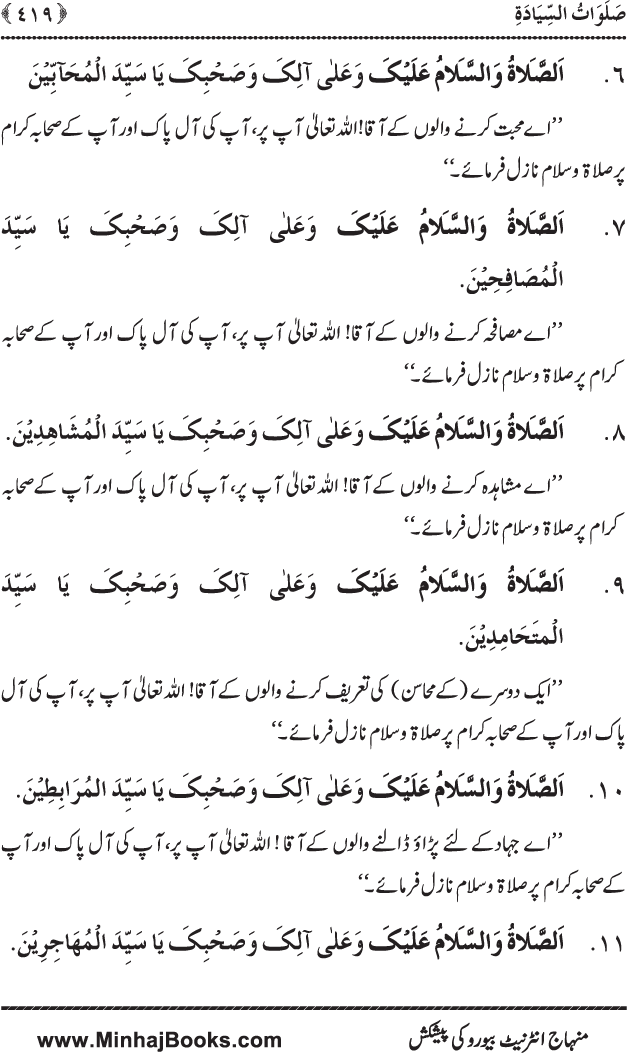 صَلَوَاتُ السِّيَادَةِ ﴿٤١٩﴾
٦. اَلصَّلَاةُ وَالسَّلَامُ عَلَيْکَ وَعَلٰی آلِکَ وَصَحْبِکَ يَا سَيِّدَ الْمُحَآبِّيْنَ
’’اے محبت کرنے والوں کے آقا! اللہ تعالیٰ آپ پر، آپ کی آل پاک اور آپ کے صحابہ کرام
پر صلاۃ وسلام نازل فرمائے۔‘‘
٧. اَلصَّلَاةُ وَالسَّلَامُ عَلَيْکَ وَعَلٰی آلِکَ وَصَحْبِکَ يَا سَيِّدَ
الْمُصَافِحِيْنَ.
’’اے مصافحہ کرنے والوں کے آقا! اللہ تعالیٰ آپ پر، آپ کی آل پاک اور آپ کے صحابہ
کرام پر صلاۃ وسلام نازل فرمائے۔‘‘
٨. اَلصَّلَاةُ وَالسَّلَامُ عَلَيْکَ وَعَلٰی آلِکَ وَصَحْبِکَ يَا سَيِّدَ الْمُشَاهِدِيْنَ.
’’اے مشاہدہ کرنے والوں کے آقا! اللہ تعالیٰ آپ پر، آپ کی آل پاک اور آپ کے صحابہ
کرام پر صلاۃ وسلام نازل فرمائے۔‘‘
٩. اَلصَّلَاةُ وَالسَّلَامُ عَلَيْکَ وَعَلٰی آلِکَ وَصَحْبِکَ يَا سَيِّدَ
الْمتَحَامِدِيْنَ.
’’ایک دوسرے (کے محاسن) کی تعریف کرنے والوں کے آقا! اللہ تعالیٰ آپ پر، آپ کی آل
پاک اور آپ کے صحابہ کرام پر صلاۃ وسلام نازل فرمائے۔‘‘
١٠. اَلصَّلَاةُ وَالسَّلَامُ عَلَيْکَ وَعَلٰی آلِکَ وَصَحْبِکَ يَا سَيِّدَ المُرَابِطِيْنَ.
’’اے جہاد کے لئے پڑاؤ ڈالنے والوں کے آقا! اللہ تعالیٰ آپ پر، آپ کی آل پاک اور آپ
کے صحابہ کرام پر صلاۃ وسلام نازل فرمائے۔‘‘
١١. اَلصَّلَاةُ وَالسَّلَامُ عَلَيْکَ وَعَلٰی آلِکَ وَصَحْبِکَ يَا سَيِّدَ الْمُهَاجِرِيْنَ.
منہاج انٹرنیٹ بیورو کی پیشکش www.MinhajBooks.com